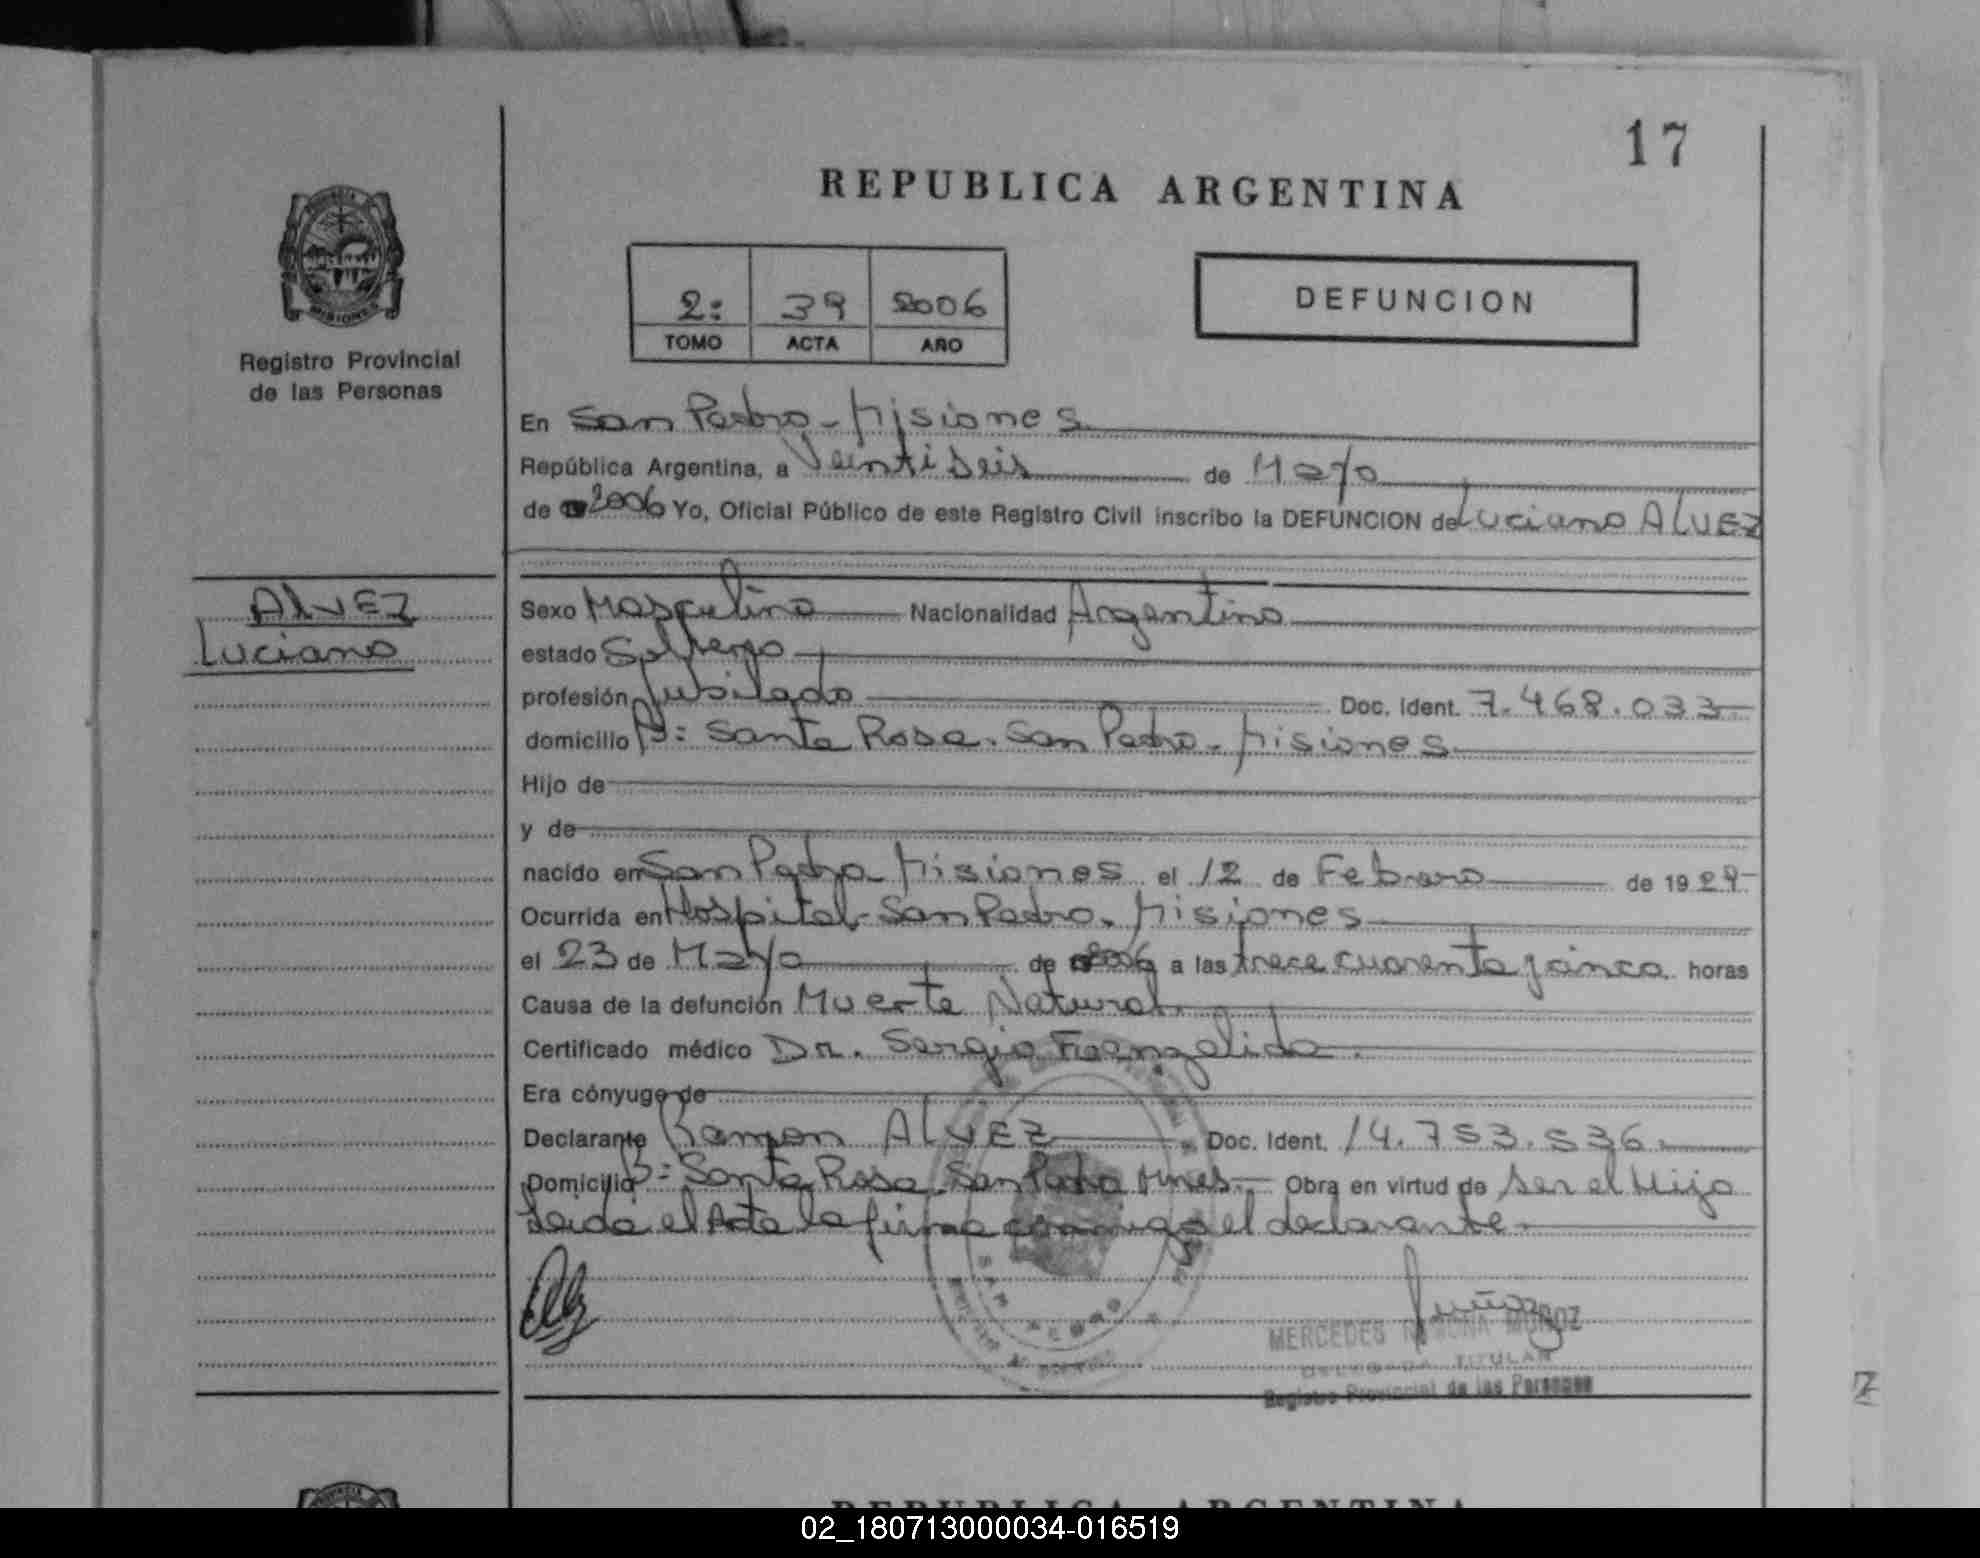 17
REPUBLICA ARGENTINA
2: 39 2006
TOMO ACTA AÑO
DEFUNCION
MISIONES
Registro Provincial
de las Personas
En San Pedro - Misiones
República Argentina, a Veintiseis de Mayo
de 2006 Yo, Oficial Público de este Registro Civil inscribo la DEFUNCION de Luciano ALVEZ
ALVEZ
Luciano
Sexo Masculino Nacionalidad Argentino
estado Soltero
profesión Jubilado Doc. Ident. 7.468.033
domicilio B: Santa Rosa. San Pedro - Misiones
Hijo de
y de
nacido en San Pedro Misiones el 12 de Febrero de 1929
Ocurrida en Hospital - San Pedro. Misiones
el 23 de Mayo de 2006 a las trece cuarenta y cinco horas
Causa de la defunción Muerte Natural.
Certificado médico Dr. Sergio
Era cónyuge de
Declarante Ramon ALVEZ Doc. Ident. 14.753.536.
Domicilio B: Santa Rosa. San Pedro Mnes. Obra en virtud de ser el Hijo
Leida el Acta la firma conmigo el declarante.
SAN PEDRO
MERCEDES RAMONA MUÑOZ
DELEGADA TITULAR
Registro Provincial de las Personas
REPUBLICA ARGENTINA
02_180713000034-016519